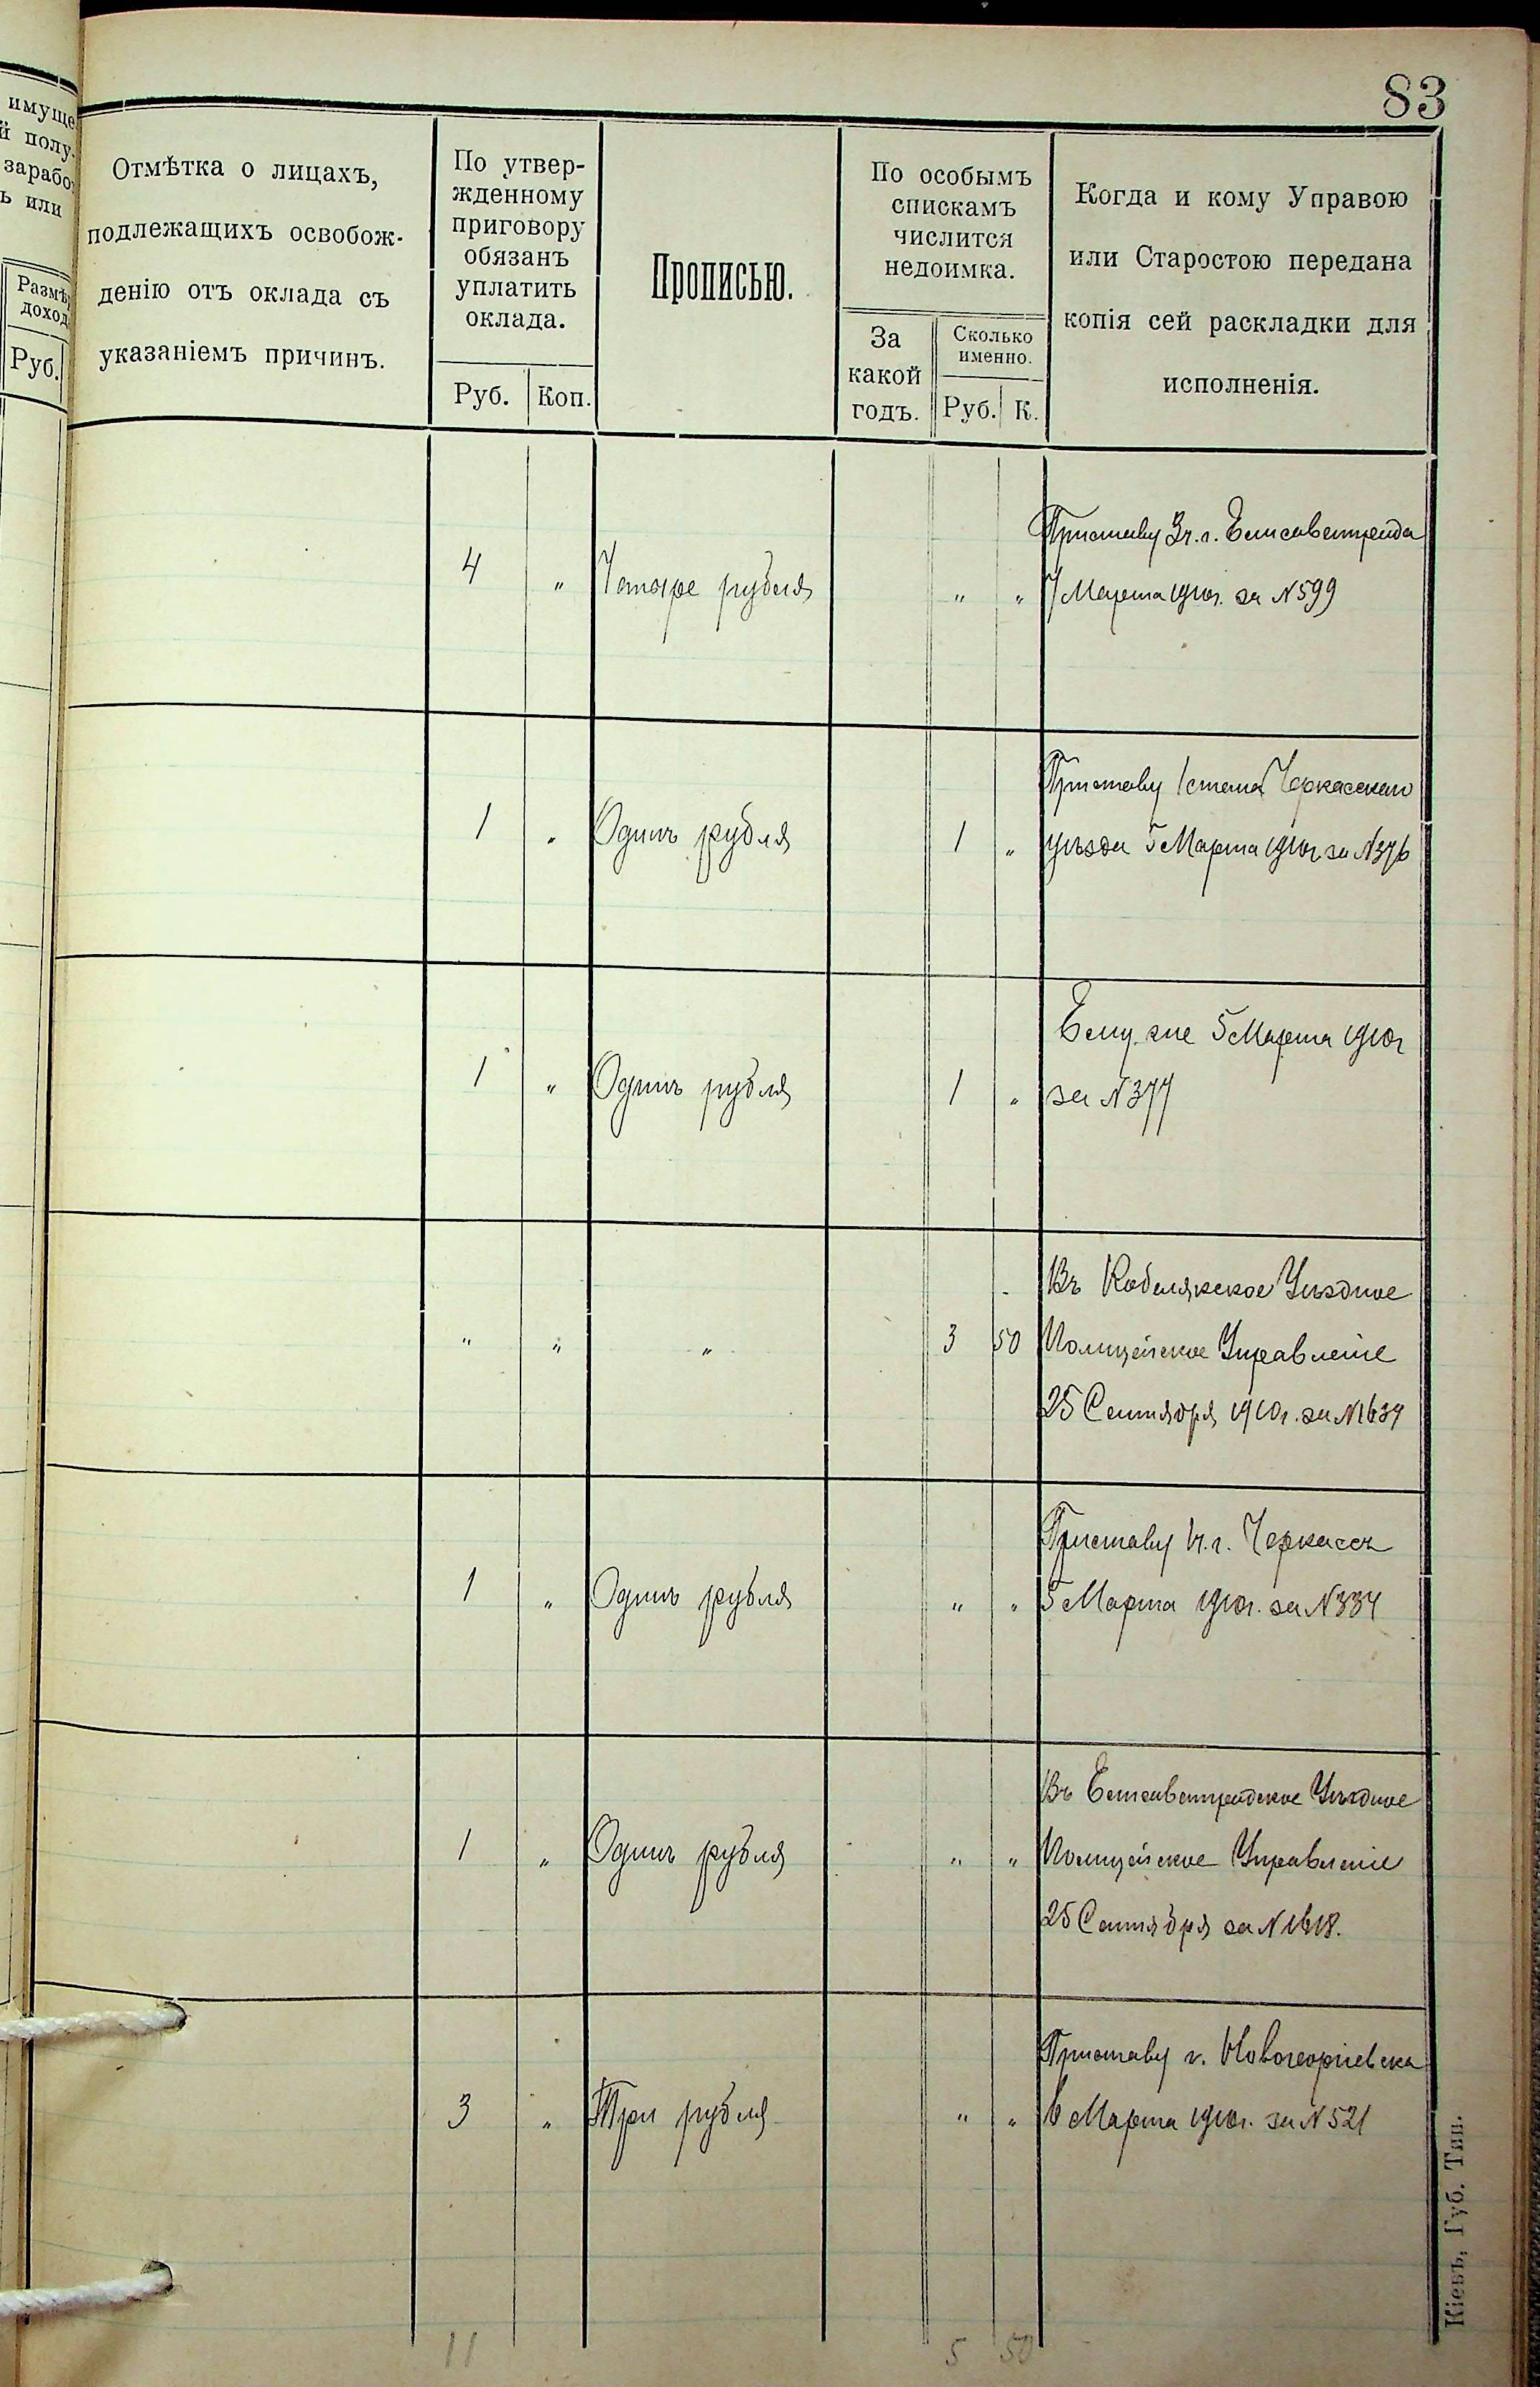 83
имуще
й полу-
зарабо
ь или
Размѣ
доход
Руб.
Отмѣтка о лицахъ,
подлежащихъ освобож-
денію отъ оклада съ
указаніемъ причинъ.
По утвер-
жденному
приговору
обязанъ
уплатить
оклада.
Руб. Коп.
Прописью.
По особымъ
спискамъ
числится
недоимка.
За
какой
годъ.
Сколько
именно.
Руб. К.
Когда и кому Управою
или Старостою передана
копія сей раскладки для
исполненія.
Приставу 3 ч. г. Елисаветграда
4 " Четыре рубля " " 7 Марта 1910 г. за N 599
Приставу 1 стана Черкасскаго
1 " Одинъ рубля 1 " уѣзда 5 Марта 1910 г. за N 376
Ему же 5 Марта 1910 г
1 " Одинъ рубля 1 " за N 377
Въ Кобелякское Уѣздное
" " " 3 50 Полицейское Управленіе
25 Сентября 1910 г. за N 1634
Приставу 1 ч. г. Черкассъ
1 " Одинъ рубля " " 5 Марта 1910 г. за N 334
Въ Елисаветградское Уѣздное
1 " Одинъ рубля " " Полицейское Управленіе
25 Сентября за N 1618.
Приставу г. Новогеоргіевска
3 " Три рубля " " 6 Марта 1910 г. за N 521
11 5 50
Кіевъ, Губ. Тип.